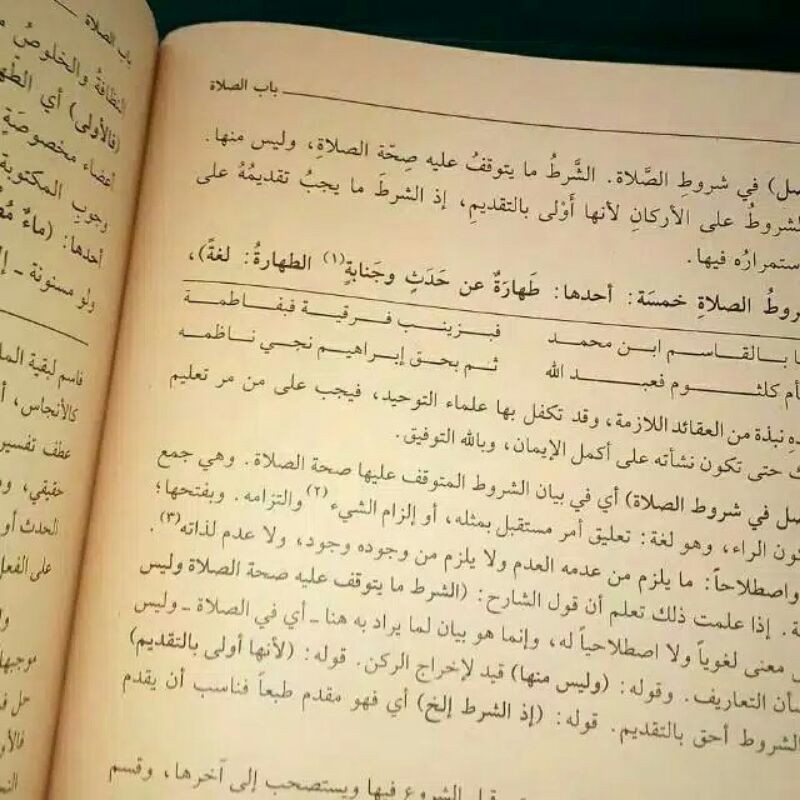 باب الصلاة
في شروطِ الصَّلاة. الشَّرطُ ما يتوقفُ عليه صِحّة الصلاةِ، وليس منها.
على الأركانِ لأنها أَوْلى بالتقديمِ، إذ الشرطَ ما يجبُ تقديمُهُ على
فيها.
الصلاةِ خمسَة: أحدها: طَهارَةٌ عن حَدَثٍ وجَنابةٍ(١) الطهارةُ: لغةً)،
بـالقـاسـم ابـن محمـد فبـزينـب فـرقيـة فبفـاطمـة
كلثـوم فعبـد الله ثـم بحـق إبـراهيـم نجـي نـاظمـه
نبذة من العقائد اللازمة، وقد تكفل بها علماء التوحيد، فيجب على من مر تعليم
حتى تكون نشأته على أكمل الإيمان، وبالله التوفيق.
في شروط الصلاة) أي في بيان الشروط المتوقف عليها صحة الصلاة. وهي جمع
الراء، وهو لغة: تعليق أمر مستقبل بمثله، أو إلزام الشيء(٢) والتزامه. وبفتحها؛
واصطلاحاً: ما يلزم من عدمه العدم ولا يلزم من وجوده وجود، ولا عدم لذاته(٣).
إذا علمت ذلك تعلم أن قول الشارح: (الشرط ما يتوقف عليه صحة الصلاة وليس
معنى لغوياً ولا اصطلاحياً له، وإنما هو بيان لما يراد به هنا ـ أي في الصلاة ـ وليس
التعاريف. وقوله: (وليس منها) قيد لإخراج الركن. قوله: (لأنها أولى بالتقديم)
الشروط أحق بالتقديم. قوله: (إذ الشرط إلخ) أي فهو مقدم طبعاً فناسب أن يقدم
الشروع فيها ويستصحب إلى آخرها، وقسم
باب الصلاة
النظافةُ والخلوصُ
(فالأولى) أي
أعضاء مخصوصَةٍ
وجوبِ المكتوبة
أحدها: (ماءٌ
ولو مسنونة ـ
قاسم لبقية
كالأنجاس،
عطف تفسير
حقيقي،
الحدث أو
على الفعل
موجبها